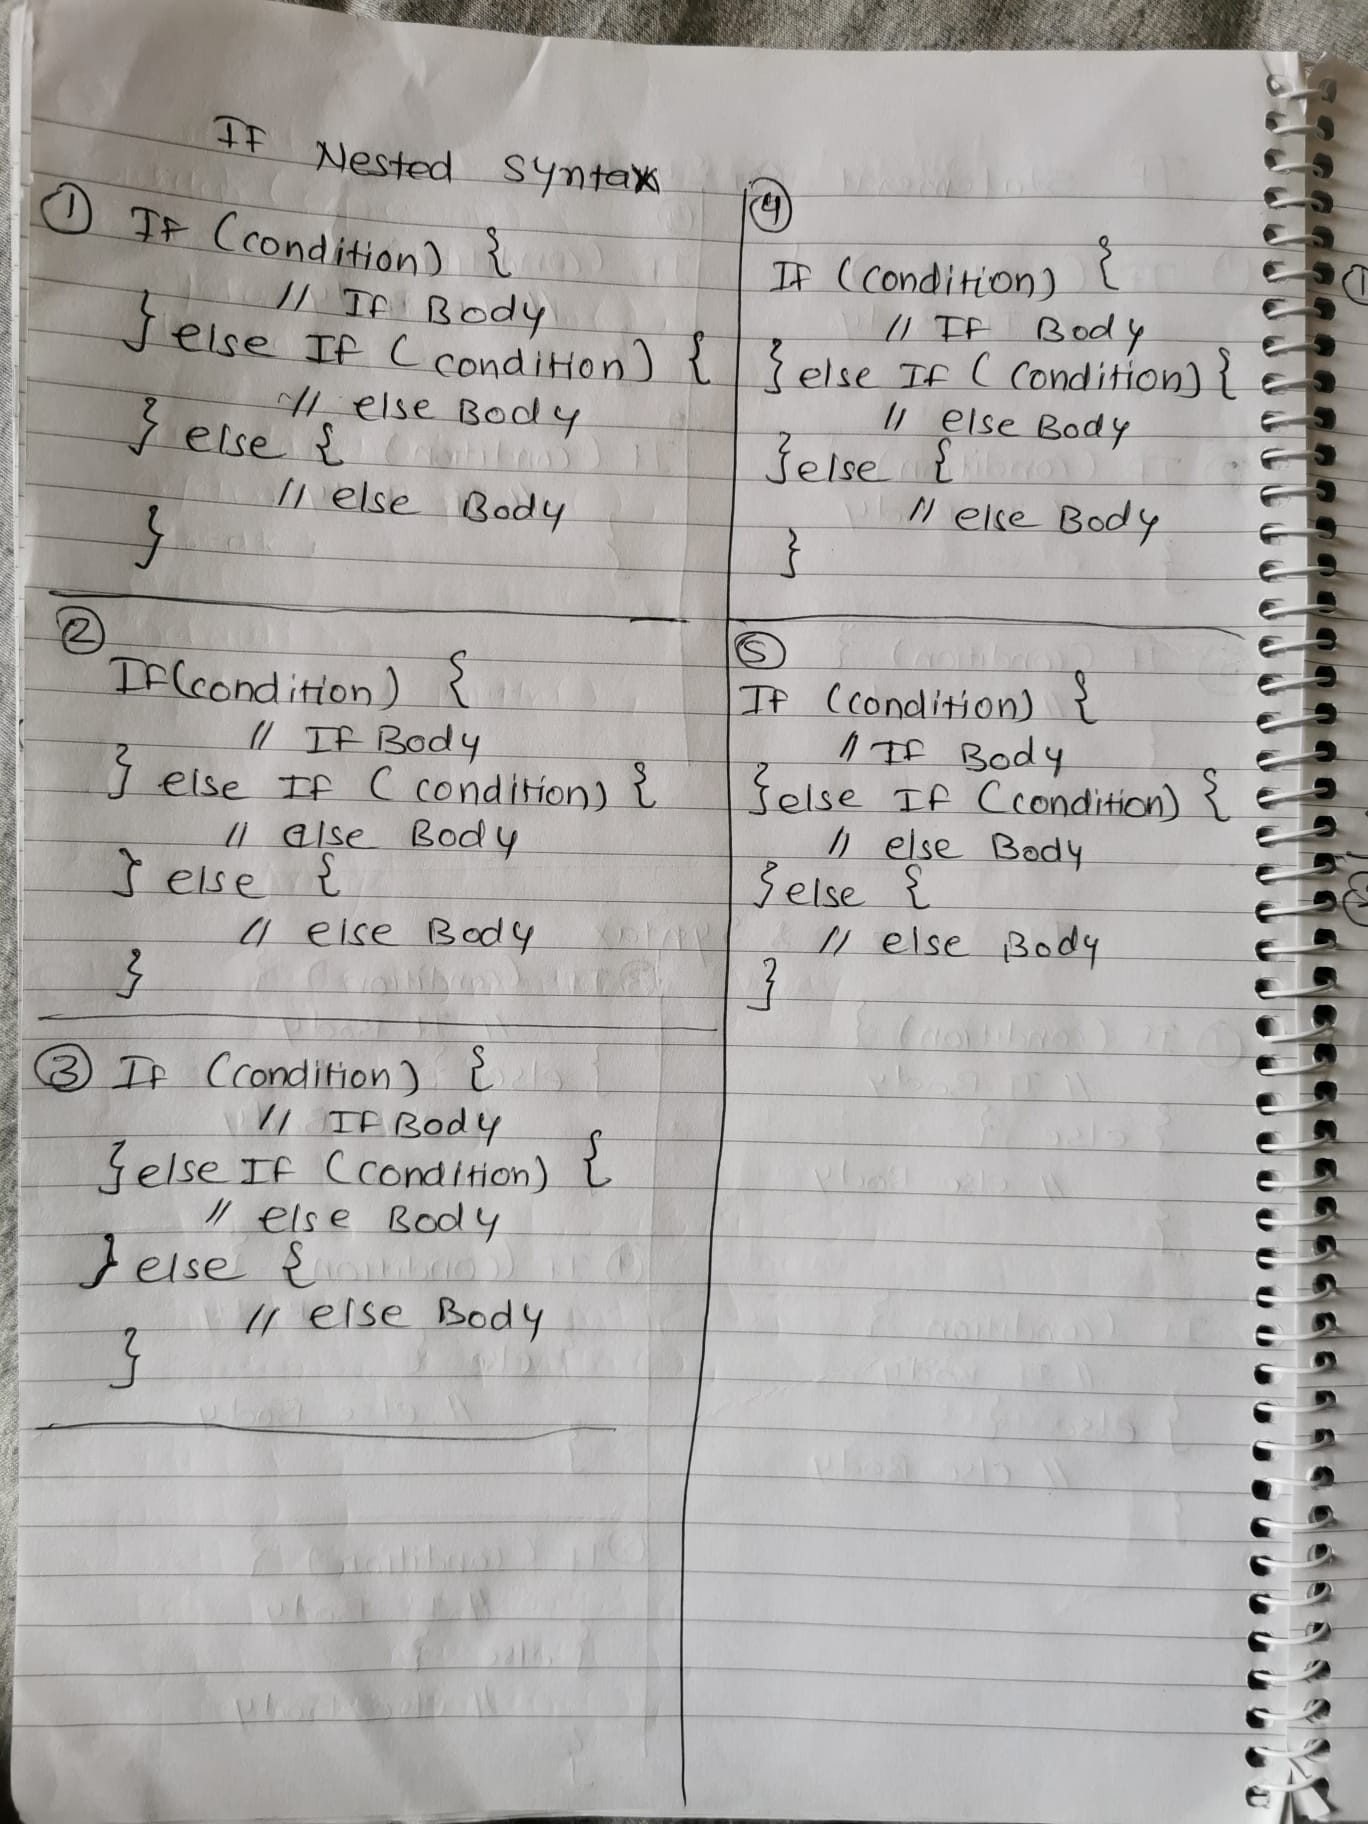 IF Nested Syntax
① If (condition) {
// If Body
} else If (condition) {
// else Body
} else {
// else Body
}
②
If(condition) {
// If Body
} else If (condition) {
// else Body
} else {
// else Body
}
③ If (condition) {
// If Body
}else If (condition) {
// else Body
} else {
// else Body
}
④
If (condition) {
// If Body
}else If (condition){
// else Body
}else {
// else Body
}
⑤
If (condition) {
// If Body
}else If (condition) {
// else Body
}else {
// else Body
}